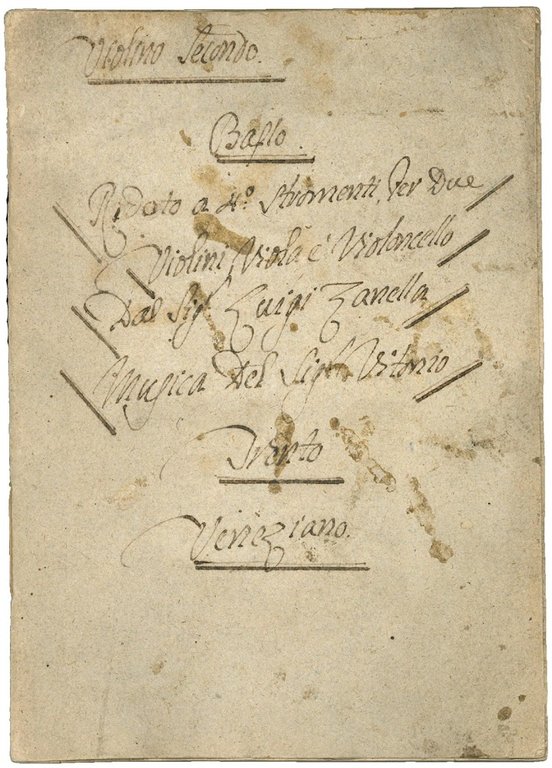 Violino Secondo.
Ballo.
Ridoto a 4º. Stromenti, Per Due
Violini, Viola è Violoncello
Dal Sigr. Luigi Zanella
Musica Del Sigr. Vitorio
Trento
Veneziano.